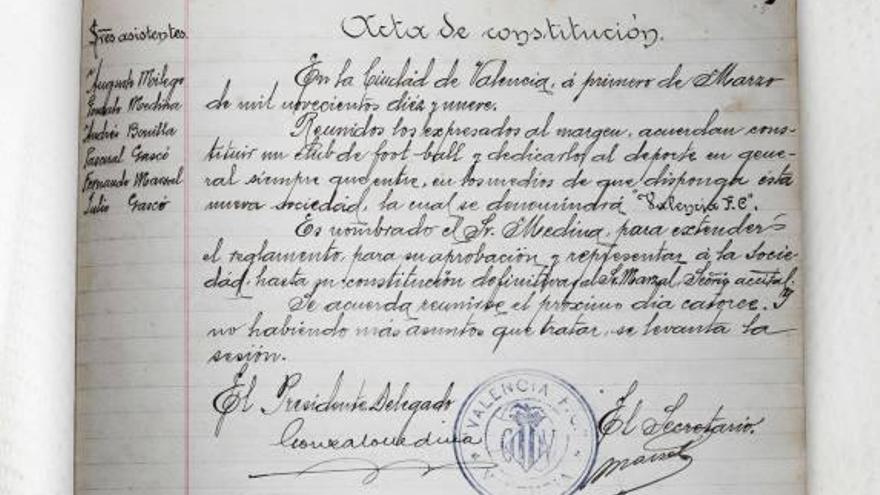 Sres asistentes.
Augusto Milego
Gonzalo Medina
Andrés Bonilla
Pascual Gascó
Fernando Marzal
Julio Gascó
Acta de constitución.
En la Ciudad de Valencia, á primero de Marzo
de mil novecientos diéz y nueve.
Reunidos los expresados al margen, acuerdan cons-
tituir un club de foot-ball y dedicarlo al deporte en gene-
ral siempre que entre, en los medios de que disponga ésta
nueva sociedad, la cual se denominará "Valencia F.C".
Es nombrado el Sr. Medina, para extender
el reglamento, para su aprobación y representar á la Socie-
dad, hasta su constitución definitiva, y al Sr. Marzal,
Se acuerda reunirse el próximo dia catorce. Y
no habiendo más asuntos que tratar, se levanta la
sesión.
El Presidente Delegado
Gonzalo Medina
VALENCIA F.C.
VALENCIA
El Secretario.
Marzal